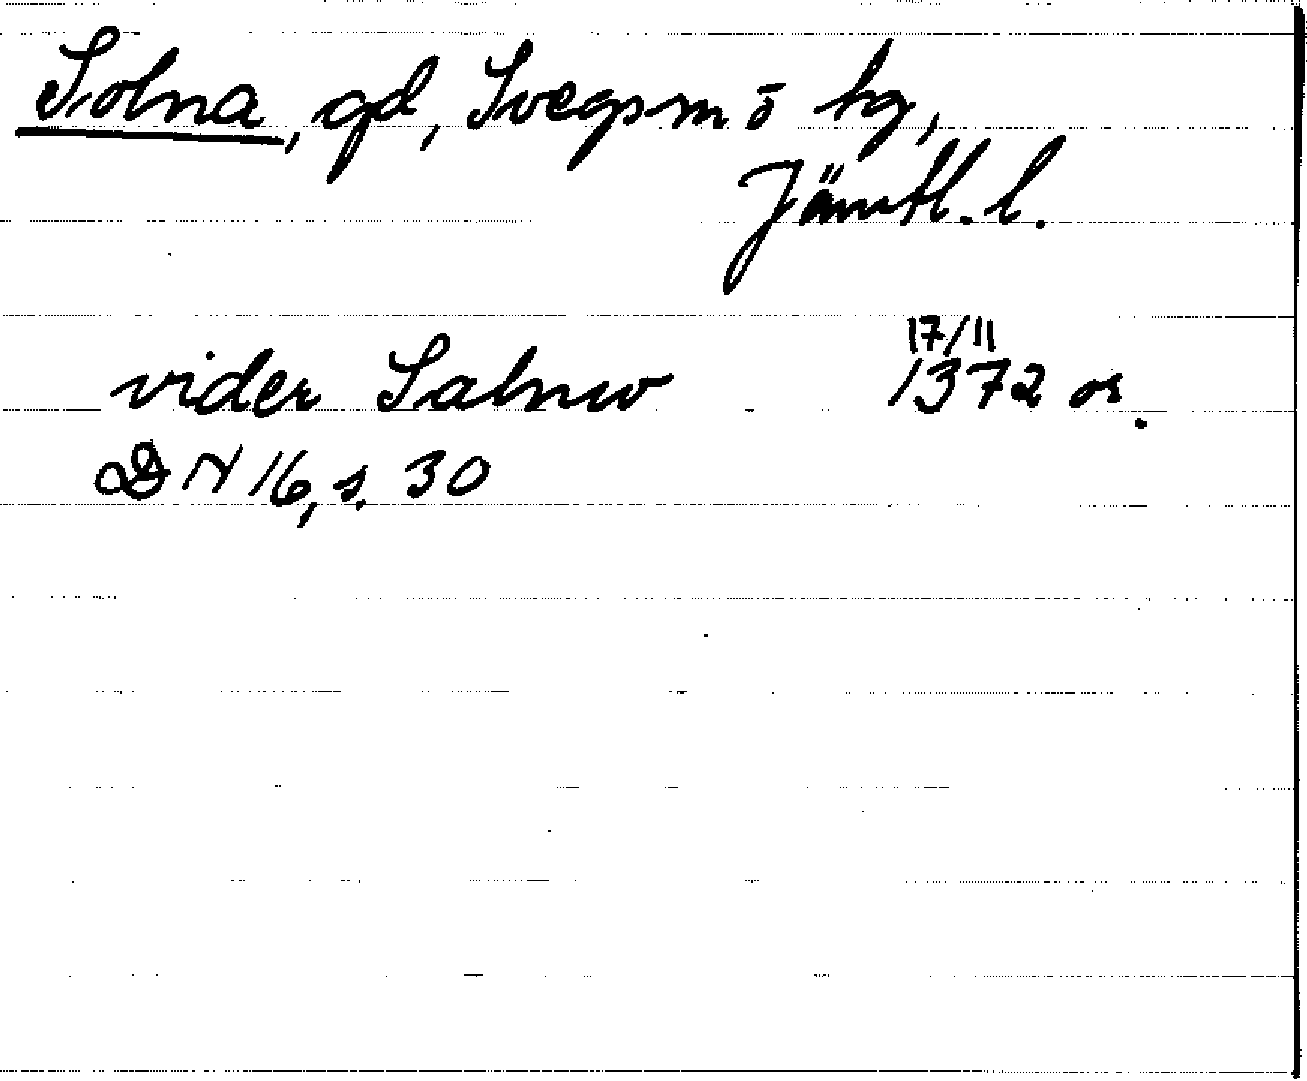 Solna, gd, Svegs m ō hg,
Jämtl. l.
vider Salnw 17/11 1372 or.
DN 16, s. 30